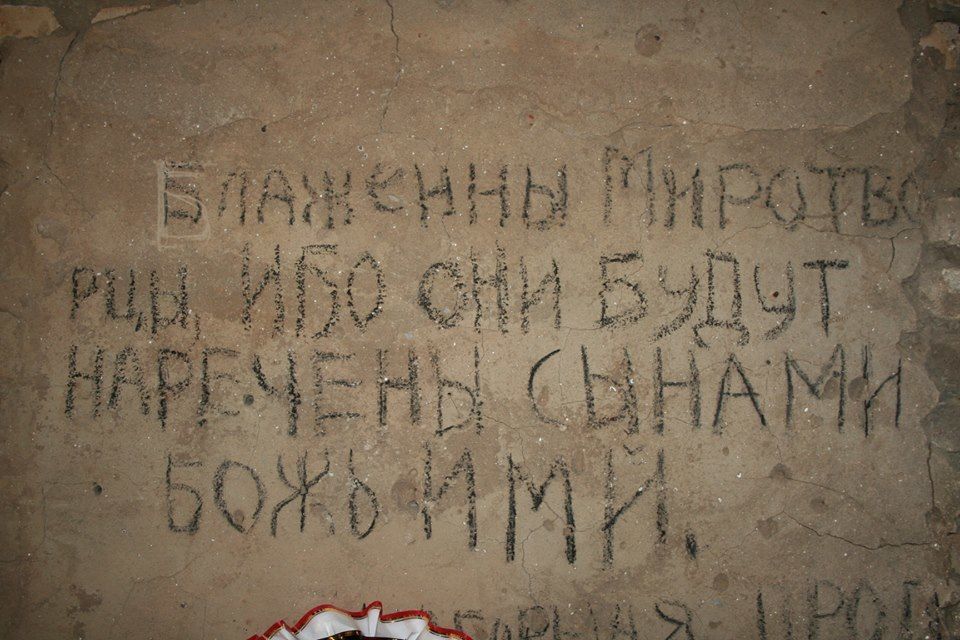 Блаженны Миротво
рцы, ибо они будут
наречены сынами
божьимй.